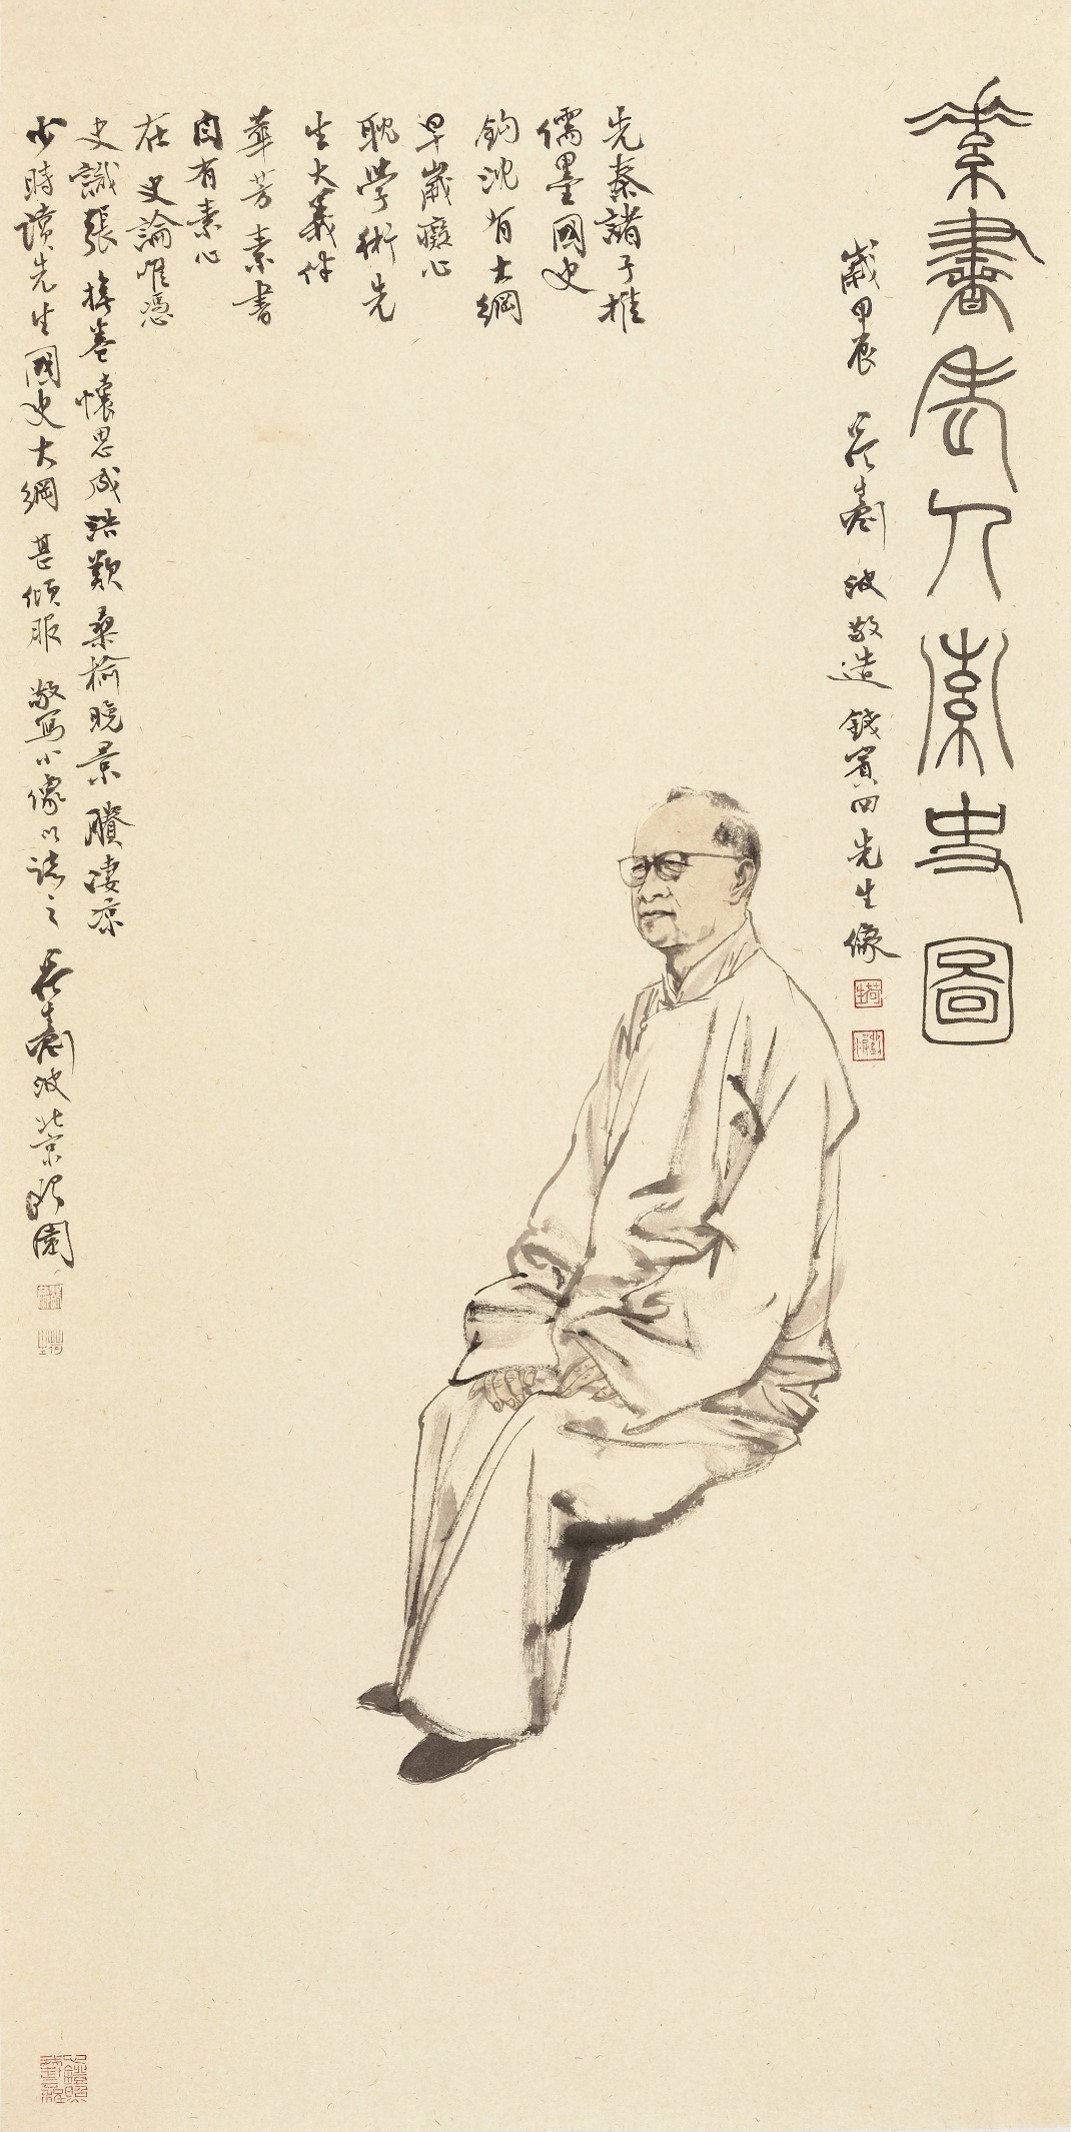 素書老人索史圖
歲甲辰 吳藏波敬造 錢賓四先生像
先秦諸子推
儒墨國史
鈎沈有大綱
早歲癡心
耽學術先
生大義伴
華芳素書
自有素心
在史論唯憑
史識張掩卷懷思成浩歎桑榆晚景賸淒涼
少時讀先生國史大綱甚傾服敬寫小像以誌之 吳波北京